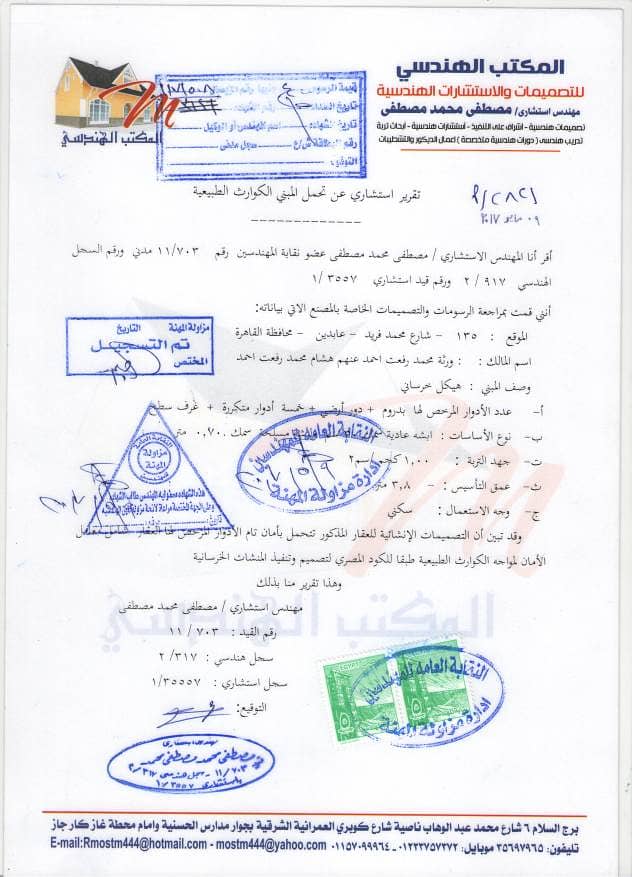 المكتب الهندسي
للتصميمات والاستشارات الهندسية
مهندس استشارى/ مصطفى محمد مصطفى
تصميمات هندسية - اشراف على التنفيذ - استشارات هندسية - ابحاث تربة
تدريب هندسى ( دورات هندسية متخصصة ) اعمال الديكور والتشطيبات
المكتب الهندسي
قيمة الرسوم
تاريخ السداد
تاريخ الشهادة
سجل مدنى
التوقيع
تقرير استشاري عن تحمل المبني الكوارث الطبيعية
٠٩ مايو ٢٠١٧
أقر أنا المهندس الاستشاري / مصطفى محمد مصطفى عضو نقابة المهندسين رقم ١١/٧٠٣ مدني ورقم السجل
الهندسي ٢/٩١٧ ورقم قيد استشاري ١/٣٥٥٧
أنني قمت بمراجعة الرسومات والتصميمات الخاصة بالمصنع الاتي بياناته:
الموقع : ١٣٥ - شارع محمد فريد - عابدين - محافظة القاهرة
اسم المالك : ورثة محمد رفعت احمد عنهم هشام محمد رفعت احمد
وصف المبني : هيكل خرساني
أ- عدد الأدوار المرخص لها بدروم + دور أرضي + خمسة أدوار متكررة + غرف سطح
ب- نوع الأساسات : لبشه عادية مسلحة سمك ٠,٧٠ متر
ت- جهد التربة : ١,٠٠ كجم/سم٢
ث- عمق التأسيس : - ٣,٨ متر
ج- وجه الاستعمال : سكني
وقد تبين أن التصميمات الإنشائية للعقار المذكور تتحمل بأمان تام الأدوار المرخص لها العقار
الأمان لمواجه الكوارث الطبيعية طبقا للكود المصري لتصميم وتنفيذ المنشات الخرسانية
وهذا تقرير منا بذلك
مزاولة المهنة التاريخ
تم التسجيل
المختص
النقابة العامة
مزاولة
المهنة
للمهندسين
النقابة العامه للمهندسين
ادارة مزاولة المهنة
مهندس استشاري / مصطفى محمد مصطفى
رقم القيد : ١١/٧٠٣
سجل هندسي : ٢/٣١٧
سجل استشاري : ١/٣٥٥٥٧
التوقيع:
النقابة العامه للمهندسين
ادارة مزاولة المهنة
مهندس استشارى
م/ مصطفى محمد مصطفى
١١/٧٠٣ - سجل هندسى ٢/٣١٧
استشارى ١/٣٥٥٧
المكتب الهندسي
برج السلام ٦ شارع محمد عبد الوهاب ناصية شارع كوبري العمرانية الشرقية بجوار مدارس الحسنية وامام محطة غاز كار جاز
تليفون: ٣٥٦٩٧٩٦٥ موبايل: ٠١٢٢٣٧٥٧٢٧٢ - ٠١١٥٧٠٩٩٩٦٤ E-mail:Rmostm444@hotmail.com - mostm444@yahoo.com